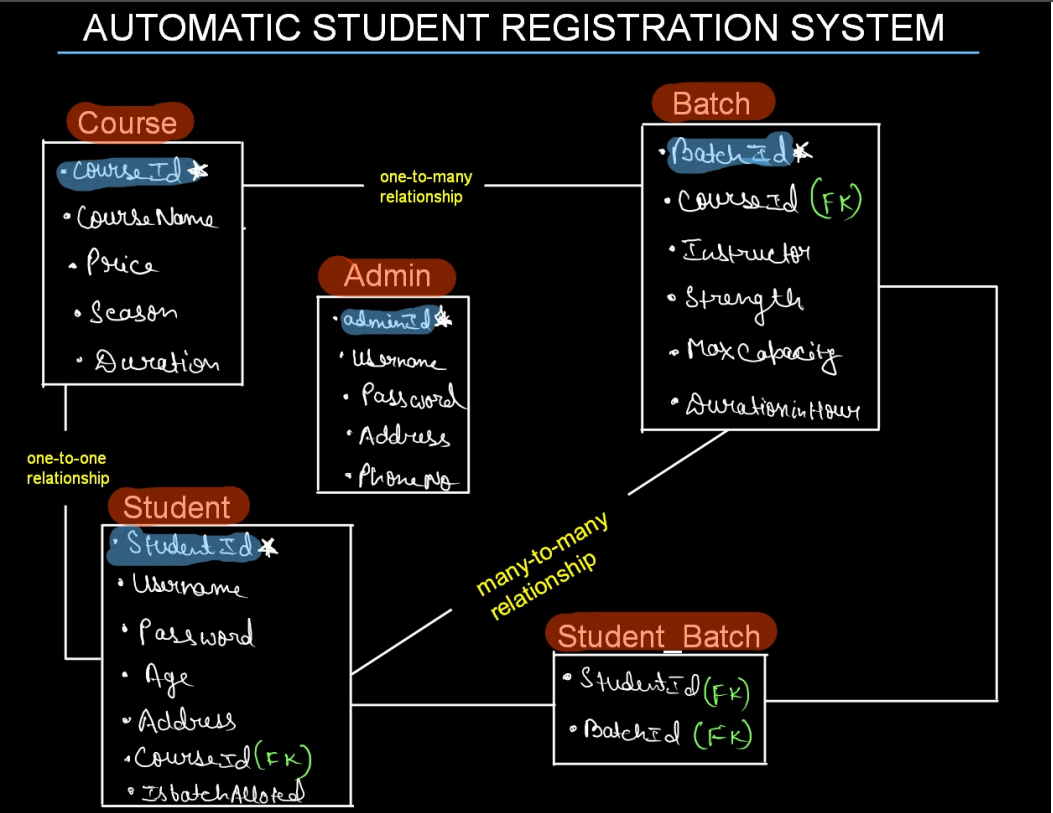 AUTOMATIC STUDENT REGISTRATION SYSTEM
Course
• CourseId *
• CourseName
• Price
• Season
• Duration
one-to-many
relationship
Batch
• BatchId *
• CourseId (FK)
• Instructor
• Strength
• MaxCapacity
• DurationinHour
Admin
• adminId *
• Username
• Password
• Address
• PhoneNo
one-to-one
relationship
Student
• StudentId *
• Username
• Password
• Age
• Address
• CourseId (FK)
• IsbatchAlloted
many-to-many
relationship
Student_Batch
• StudentId (FK)
• BatchId (FK)